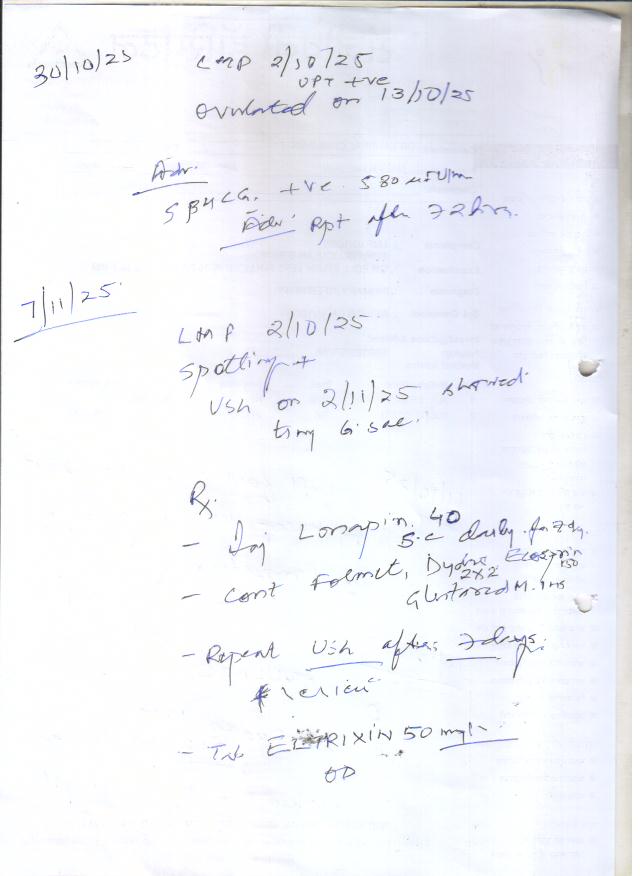 30/10/25
LMP 2/10/25
UPT +ve
ovulated on 13/10/25
Adv.
SβHCG. +ve 580 mIU/m
Adv. Rpt after 72 hrs.
7/11/25
LMP 2/10/25
Spotting +
USh on 2/11/25 showed
tiny G. sac.
Rx
- Inj Lonopin 40
S.C daily for 7 dy.
- Cont Folmet, Dydro Ecosprin
2x2 150
M. 1 HS
- Repeat USh after 7 days.
review
- Tab ELTRIXIN 50 mg
OD